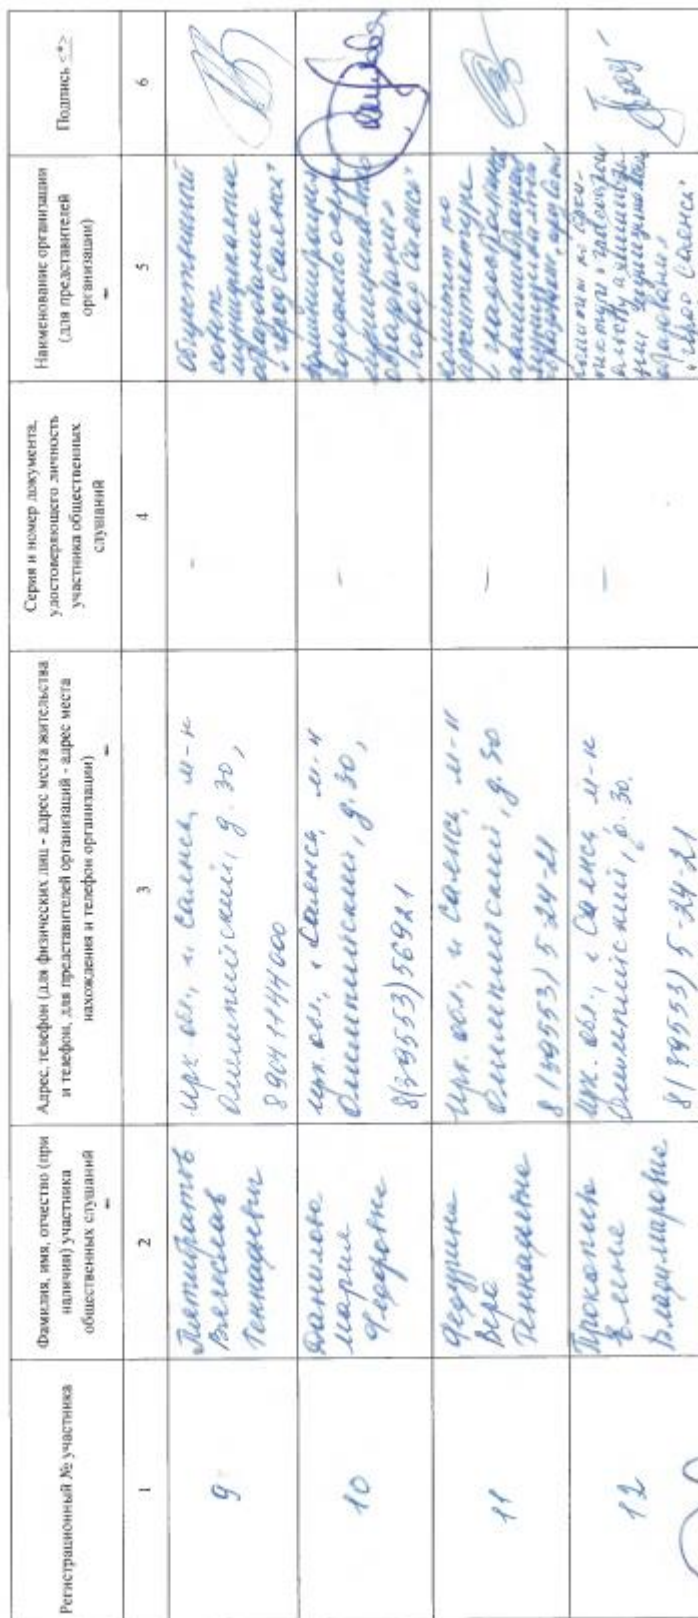 Регистрационный № участника
Фамилия, имя, отчество (при
наличии) участника
общественных слушаний
Адрес, телефон (для физических лиц - адрес места жительства
и телефон, для представителей организаций - адрес места
нахождения и телефон организации)
Серия и номер документа,
удостоверяющего личность
участника общественных
слушаний
Наименование организации
(для представителей
организации)
Подпись <*>
1
2
3
4
5
6
9
Вячеслав
Геннадьевич
Ирк. обл., г. Саянск, м-н
Олимпийский, д. 30,
89041144000
-
общественный
совет
муниципальное
образование
"город Саянск"
10
Данилова
Мария
Федоровна
Ирк. обл., г. Саянск, м-н
Олимпийский, д. 30,
8(39553)56921
-
администрация
городского округа
муниципального
образования
"город Саянск"
11
Федурина
Вера
Геннадьевна
Ирк. обл., г. Саянск, м-н
Олимпийский, д. 30
8(39553) 5-24-21
-
комитет по
архитектуре
и
12
Елена
Владимировна
Ирк. обл., г. Саянск, м-н
Олимпийский, д. 30.
8(39553) 5-24-21
-
комитет по архи-
тектуре и
муниципального
образования
"город Саянск"